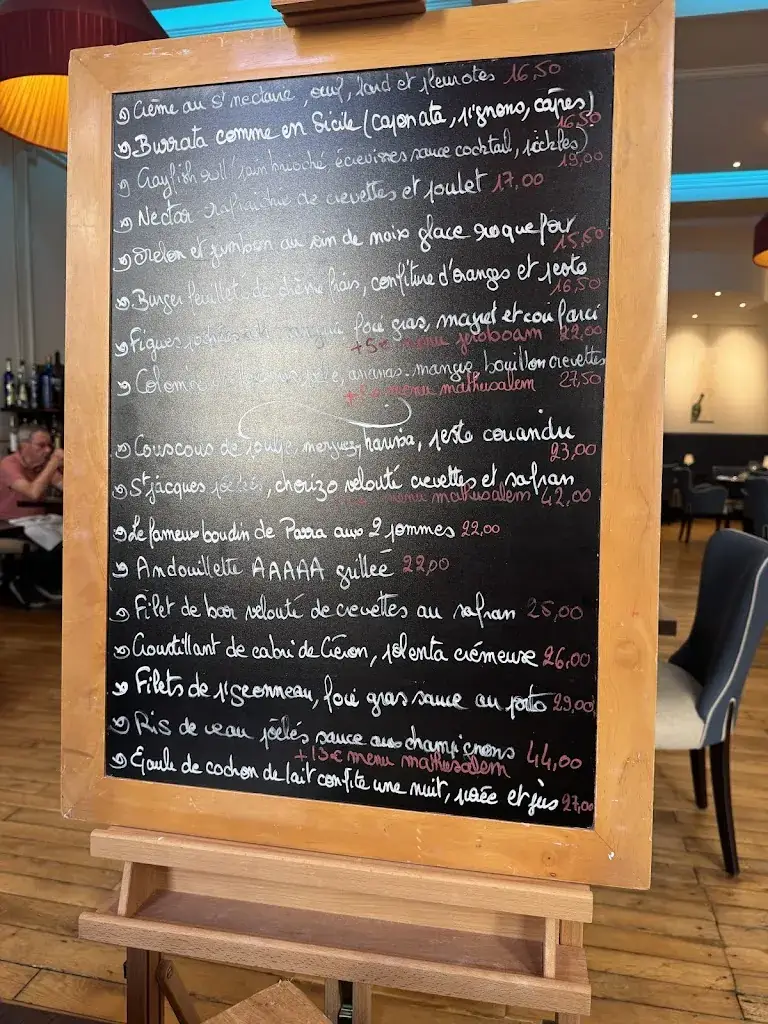 Crème au St nectaire, oeuf, lard et pleurotes 16,50
Burrata comme en Sicile (caponata, pignons, câpres)
16,50
Crayfish roll (pain brioché écrevisses sauce cocktail, pickles)
19,00
Nectar rafraichie de crevettes et poulet 17,00
Melon et jambon au vin de noix glace roquefort
15,50
Burger feuilleté de chèvre frais, confiture d'oranges et pesto
16,50
Figues foie gras, magret et cou farci
+5€ menu jeroboam 22,00
ananas-mangue, bouillon crevettes
menu mathusalem 27,50
Couscous de poulpe, merguez, harissa, pesto coriandre
23,00
St jacques poêlées, chorizo velouté crevettes et safran
menu mathusalem 42,00
Le fameux boudin de Parra aux 2 pommes 22,00
Andouillette AAAAA grillée 22,00
Filet de bar velouté de crevettes au safran 25,00
Croustillant de cabri de Céron, polenta crémeuse 26,00
Filets de pigeonneau, foie gras sauce au porto 29,00
Ris de veau poêlés sauce aux champignons 44,00
+13€ menu mathusalem
Epaule de cochon de lait confite une nuit, purée et jus 27,00